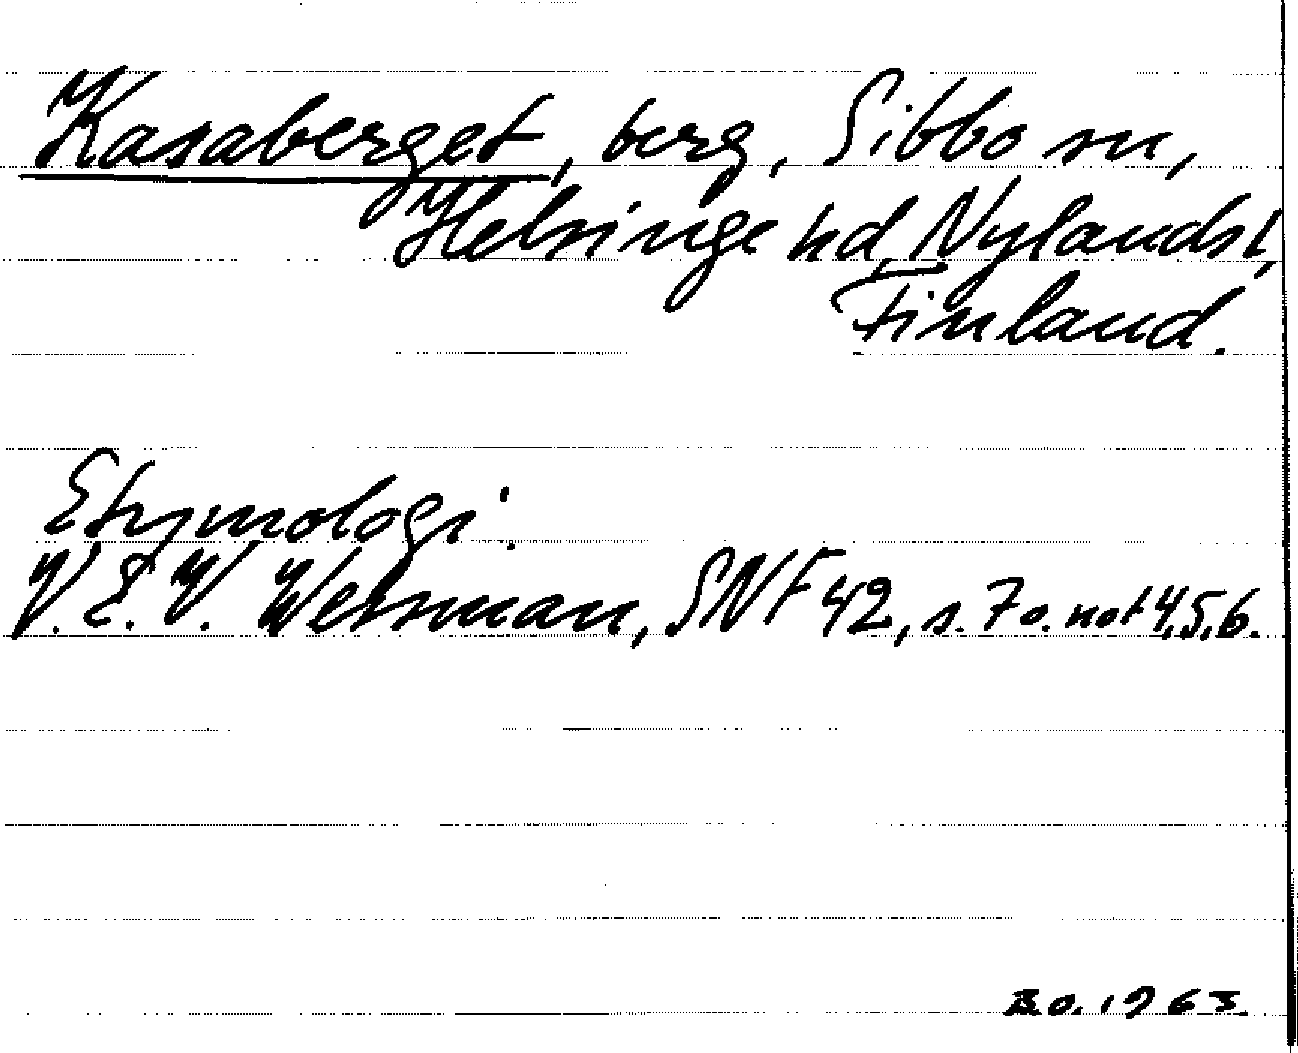 Kasaberget, berg, Sibbo sn,
Helsinge hd, Nylands l,
Finland.
Etymologi.
V. E. V. Wessman, SNF 42, s. 7 o. not 4,5,6.
B.O. 1963.